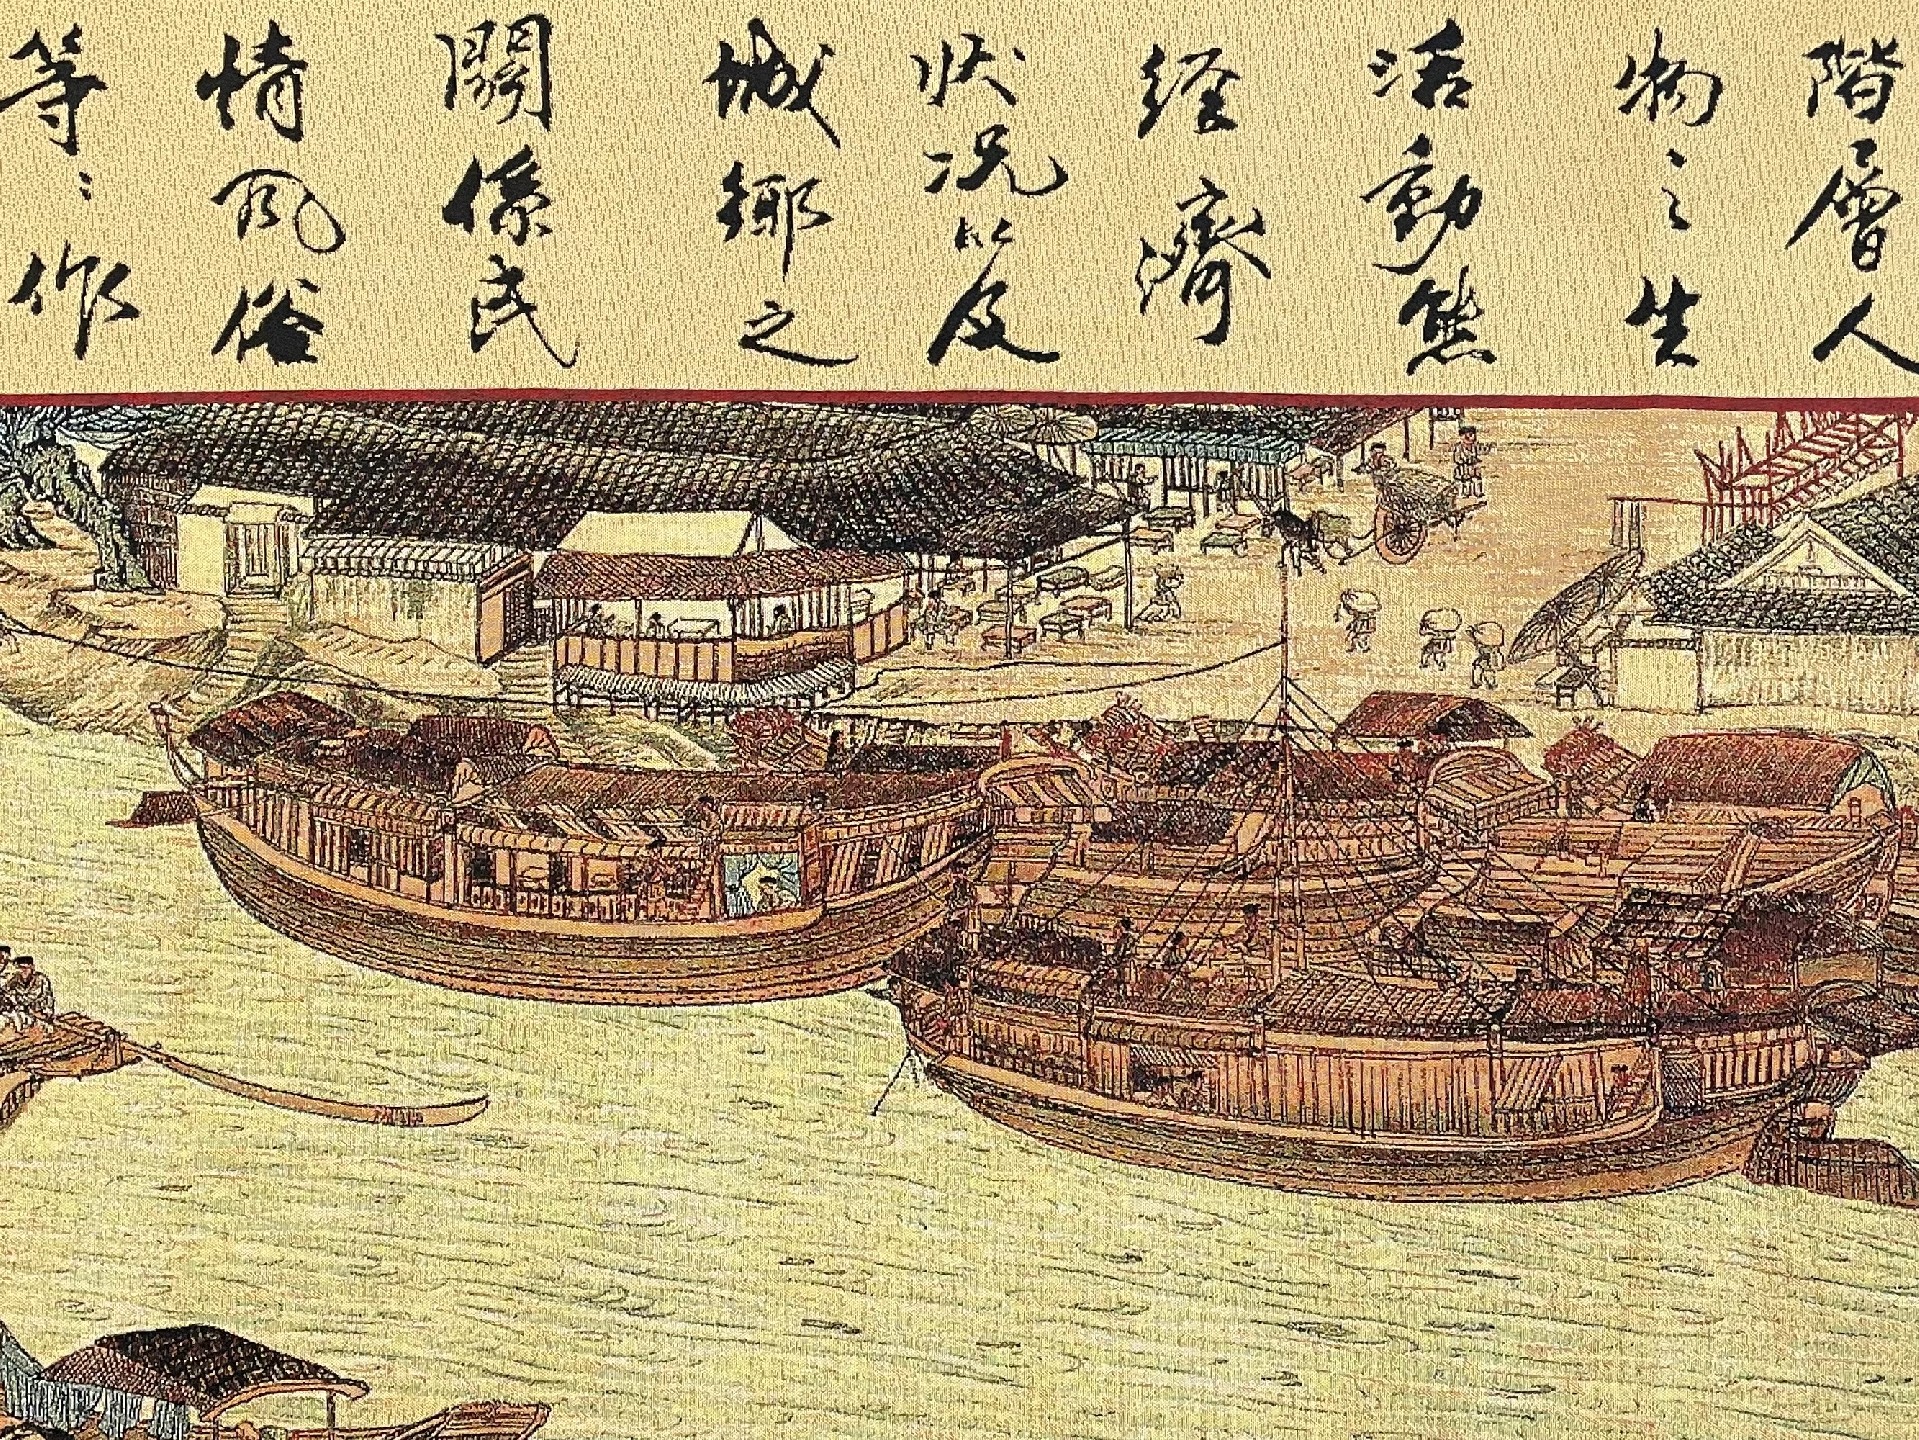 階層人
物之生
活動態
經濟
状況以及
城鄉之
關係民
情風俗
等:作